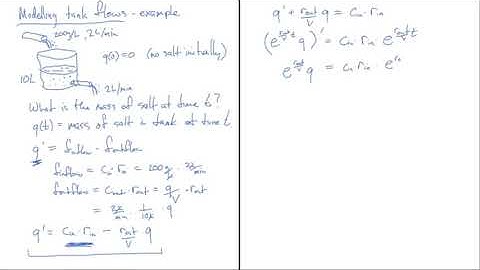 Modelling tank flows - example
200g/L, 2L/min
q(0) = 0 (no salt initially)
10L
2L/min
What is the mass of salt at time t?
q(t) = mass of salt in tank at time t
q' = finflow - foutflow
finflow = Cin · rin = 200g/L · 2L/min
foutflow = Cout · rout = q/V · rout
= 2L/min · 1/10L · q
q' = Cin · rin - rout/V · q
q' + rout/V q = Cin · rin
(e^(rout/V t) q)' = Cin rin e^(rout/V t)
q = Cin rin e